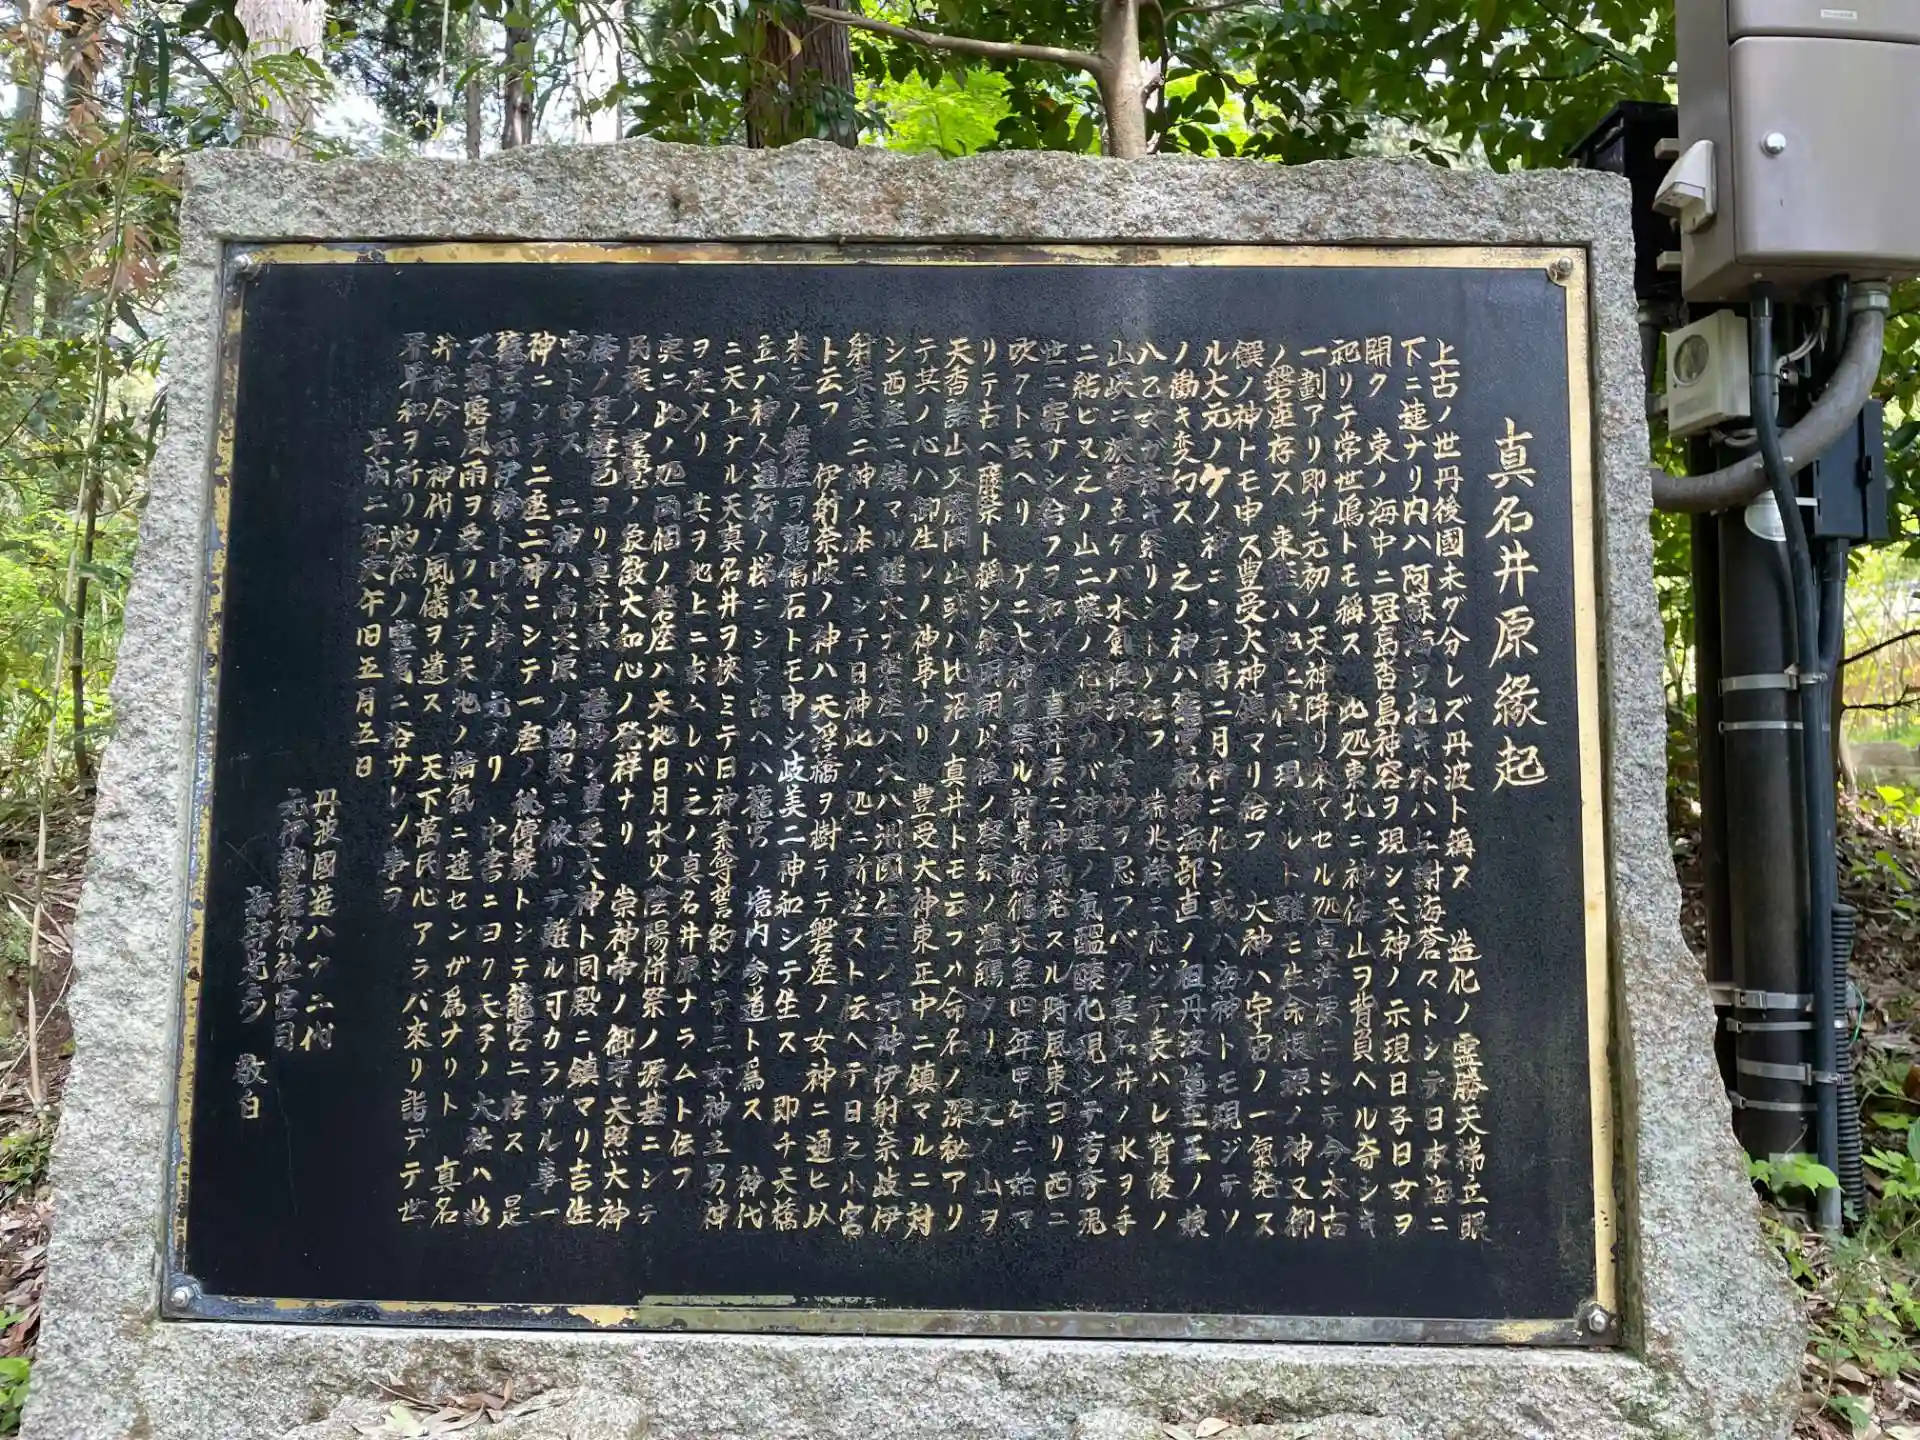 真名井原縁起
上古ノ世丹後國未ダ分レズ丹波ト稱ス 造化ノ霊勝天梯立眼
下ニ連ナリ内ハ阿蘇海ヲ抱キ外ハ与謝海蒼々トシテ日本海ニ
開ク 東ノ海中ニ冠島沓島神容ヲ現シ天神ノ示現日子日女ヲ
祀リテ常世嶋トモ稱ス 此処東北ニ神体山ヲ背負ヘル奇シキ
一劃アリ即チ元初ノ天神降リ来マセル処真井原ニシテ今太古
ノ磐座存ス 東座ハ地上ニ僅ニ現ハルト雖モ生命根源ノ神又御
饌ノ神トモ申ス豊受大神鎮マリ給フ 大神ハ宇宙ノ一氣発ス
ル大元ノケノ神ニシテ時ニ月神ニ化シ或ハ海神トモ現ジテソ
ノ働キ変幻ス 之ノ神ハ籠宮祝部海部直ノ祖丹波道主王ノ娘
八乙女ガ斎キ祭リシトゾ云フ 瑞兆洋ニ充ジテ長ハレ背後ノ
山峡ニ狭霧立タバ水氣根源ノ玄妙ヲ思フベク真名井ノ水ヲ手
ニ結ビ又之ノ山ニ藤ノ花咲カバ神霊ノ氣醞醸化現シテ若秀現
世ニ寄サシ給フヲ知ル 真井原ニ神氣発スル時風東ヨリ西ニ
吹クト云ヘリ ゲニ大神ヲ祭ル神事懿徳天皇四年甲午ニ始マ
リテ古ヘ藤祭ト稱シ欽明朝以後ノ葵祭ノ濫觴タリ 又之ノ山ヲ
天香語山又藤岡山或ハ比沼ノ真井トモ云フハ命名ノ深秘アリ
テ其ノ心ハ御生レノ神事ナリ 豊受大神東正中ニ鎮マルニ対
シ西座ニ鎮マル
射奈美二神ノ体ニシテ日神此ノ処ニ
ト云フ 伊射奈岐ノ神ハ天浮橋ヲ樹テテ磐座ノ女神ニ通ヒ以
来之ノ磐座ヲ鶺鴒石トモ申シ岐美二神和シテ生ス 即チ天橋
立ハ神人通行ノ梯ニシテ古ヘハ籠宮ノ境内参道ト爲ス 神代
ニ天上ナル天真名井ヲ挾ミテ日神素尊誓約シテ三女神五男神
ヲ産メリ 其ヲ地上ニ求ムレバ之ノ真名井原ナラムト伝フ
実ニ此ノ処両個ノ磐座ハ天地日月水火陰陽併祭ノ源基ニシテ
民族ノ霊學ノ象徴大和心ノ発祥ナリ 崇神帝ノ御宇天照大神
倭ノ笠縫邑ヨリ真井原ニ遷幸シ豊受大神ト同殿ニ鎮マリ吉佐
宮ト申ス 二神ハ高天原ノ幽契ニ依リテ離ル可カラザル事一
神ニシテ二座二神ニシテ一座ノ秘傳嚴トシテ籠宮ニ存ス 是
籠宮ヲ元伊勢ト申ス事ノ元ナリ 中書ニヨク天子ノ大社ハ必
ズ霜露風雨ヲ受ク以テ天地ノ精氣ニ達センガ爲ナリト 真名
井社今ニ神代ノ風儀ヲ遺ス 天下萬民心アラバ來リ詣デテ世
界平和ヲ祈リ灼然ノ霊驗ニ浴サレン事ヲ
平成二年庚午旧五月五日
丹波國造八十二代
元伊勢籠神社宮司
海部光彦 敬白